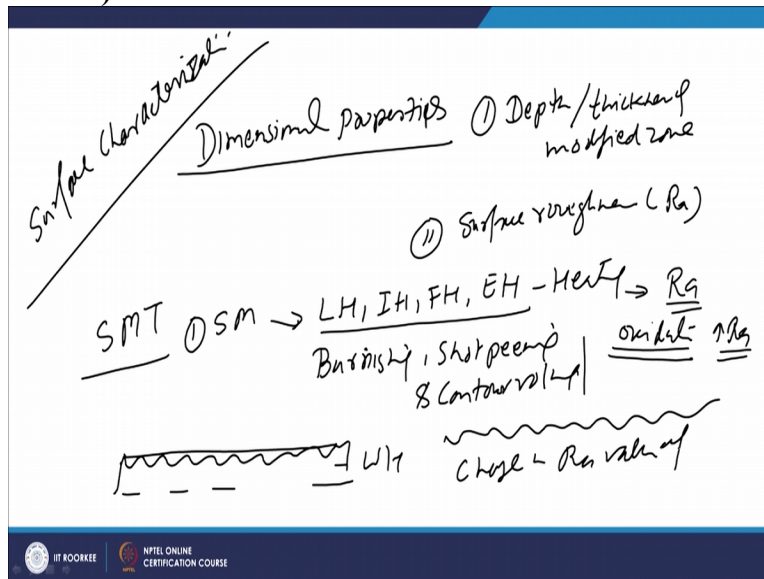 Surface Characterizati
Dimensional Properties
① Depth/thickness
modified zone
② Surface roughness (Ra)
SMT ① SM → LH, IH, FH, EH - Heatg → Ra
Burnishig, Shot peeing
& Contour rolling
oxidati ↑ Ra
WH
Change Ra value
IIT ROORKEE
NPTEL ONLINE
CERTIFICATION COURSE